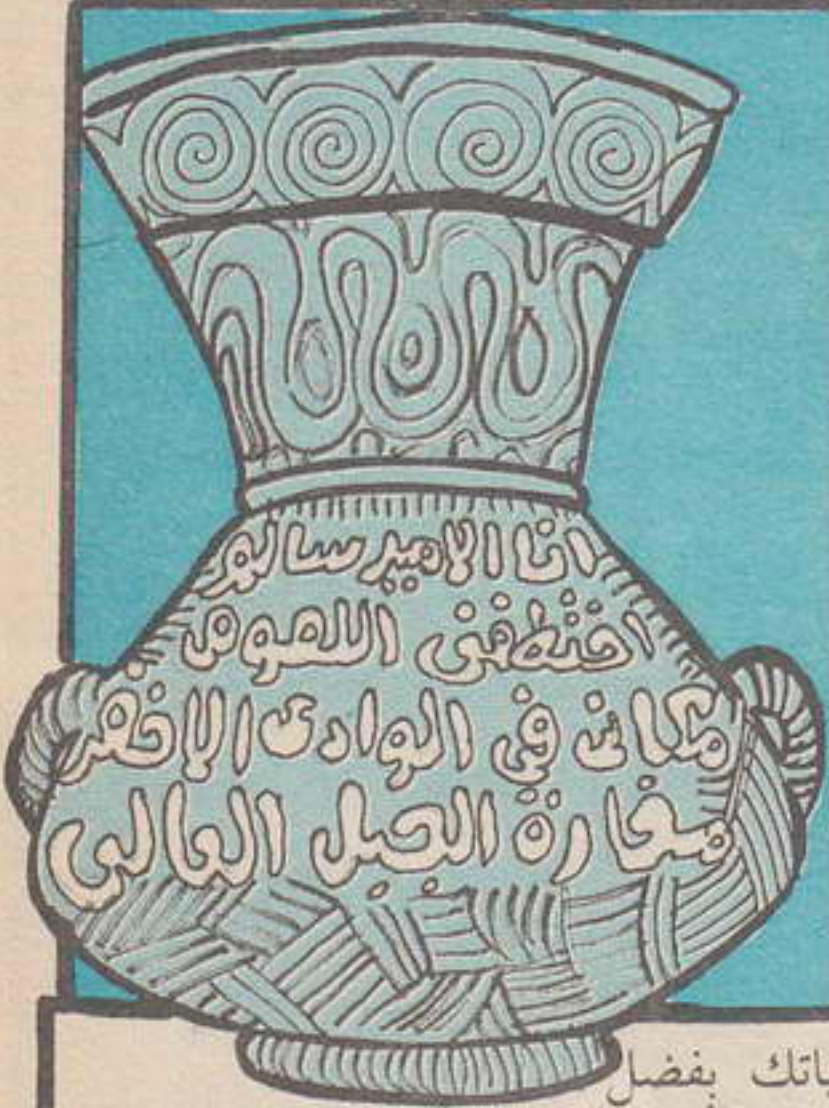 انا الامير سالم
اختطفني اللصوص
مكاني في الوادى الاخضر
مغارة الجبل العالي
بفضل